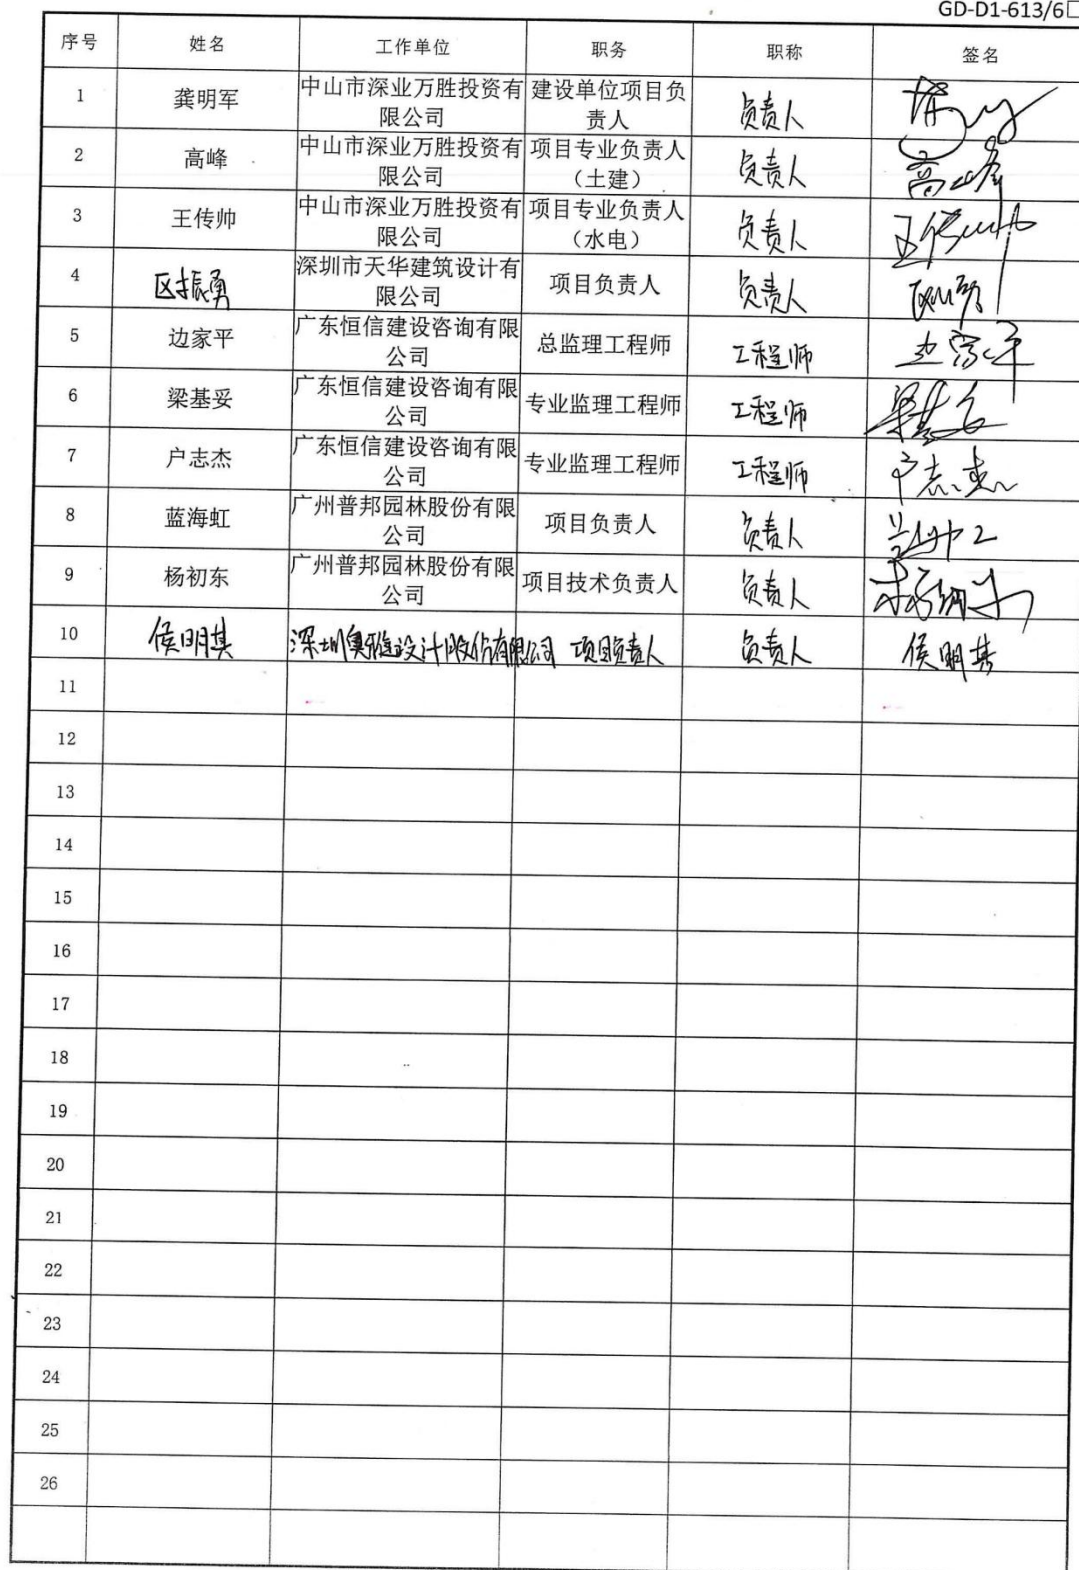 GD-D1-613/6□
序号 姓名 工作单位 职务 职称 签名
1 龚明军 中山市深业万胜投资有限公司 建设单位项目负责人 负责人
2 高峰 中山市深业万胜投资有限公司 项目专业负责人（土建） 负责人 高峰
3 王传帅 中山市深业万胜投资有限公司 项目专业负责人（水电） 负责人 王传帅
4 区振勇 深圳市天华建筑设计有限公司 项目负责人 负责人
5 边家平 广东恒信建设咨询有限公司 总监理工程师 工程师 边家平
6 梁基妥 广东恒信建设咨询有限公司 专业监理工程师 工程师 梁基妥
7 户志杰 广东恒信建设咨询有限公司 专业监理工程师 工程师 户志杰
8 蓝海虹 广州普邦园林股份有限公司 项目负责人 负责人
9 杨初东 广州普邦园林股份有限公司 项目技术负责人 负责人
10 侯明其 深圳奥雅设计股份有限公司 项目负责人 负责人 侯明其
11
12
13
14
15
16
17
18
19
20
21
22
23
24
25
26